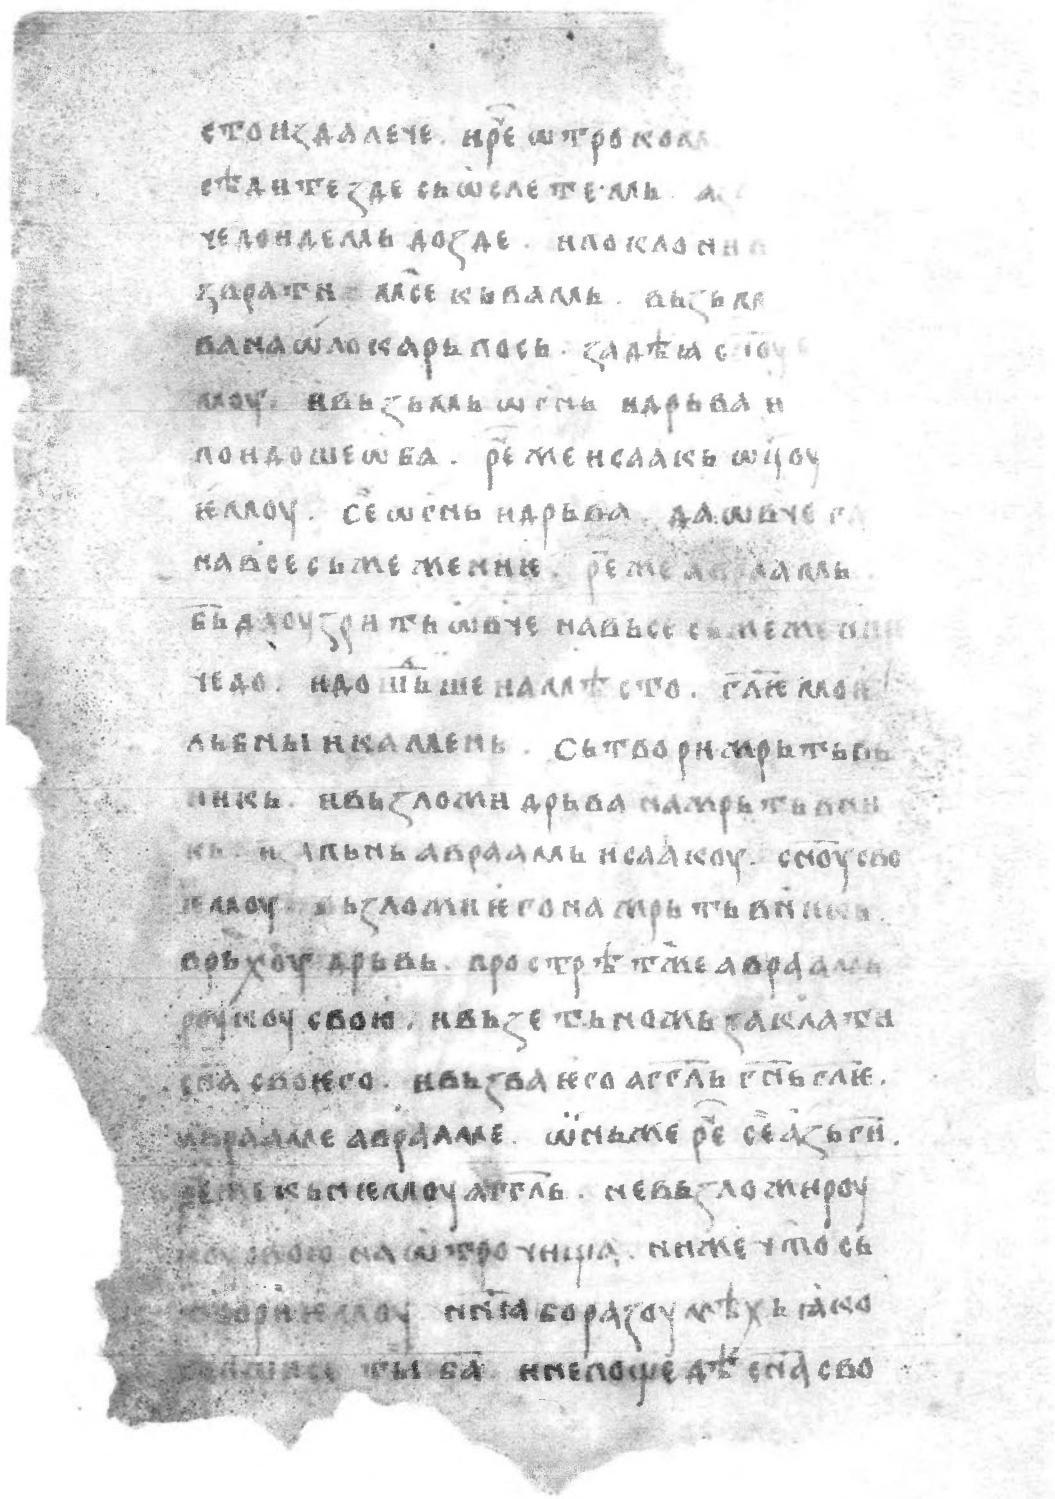 стоиздалече. нрⷱ҇е ѡтроко
сѣдитезде сьѡслетемь. а
чедоидемь дозде. ипоклони
вратн мⷭ҇е кьвамь. вьзьм
ванаѡлокарьпось. задѣꙗ сн҃оу
моу. ивьзьмь ѡгнь идрьва и
поидошеѡба. рⷱ҇еже исаакь ѡц҃оу
ѥмоу. сⷷе ѡгнь идрьва. даѡвче
навсесьжеженниѥ. рⷱ҇еже авраамь.
бь҃ да оузрить ѡвче навьсе сьжеже
чедо. идошⷣьше намѣсто. гл҃ѥ мои
льбны икамень. сьтворижрьтьвь
никь. ивьзложи дрьва нажрьтьвни
кь. и пьнь авраамь исаакоу. сн҃оу сво
ѥмоу. вьзложииѥго нажрьтьвникь.
врьхоу дрьвь. прострѣтже авраамь
роукоу свою. ивьзетьножь заклати
сн҃а своѥго. ивьзваѥго агг҃ль гн҃ь гл҃ѥ.
аврааме авраме. ѡньже рⷱ҇е сⷷе азьг҃и.
рⷱ҇еже кьнѥмоу агг҃ль. невьзложироу
коу свою наѡтрочища. ниже что сь
твори ѥмоу нн҃ꙗ боразоумѣхь ꙗко
ты ба҃. инепощедѣ сн҃а сво